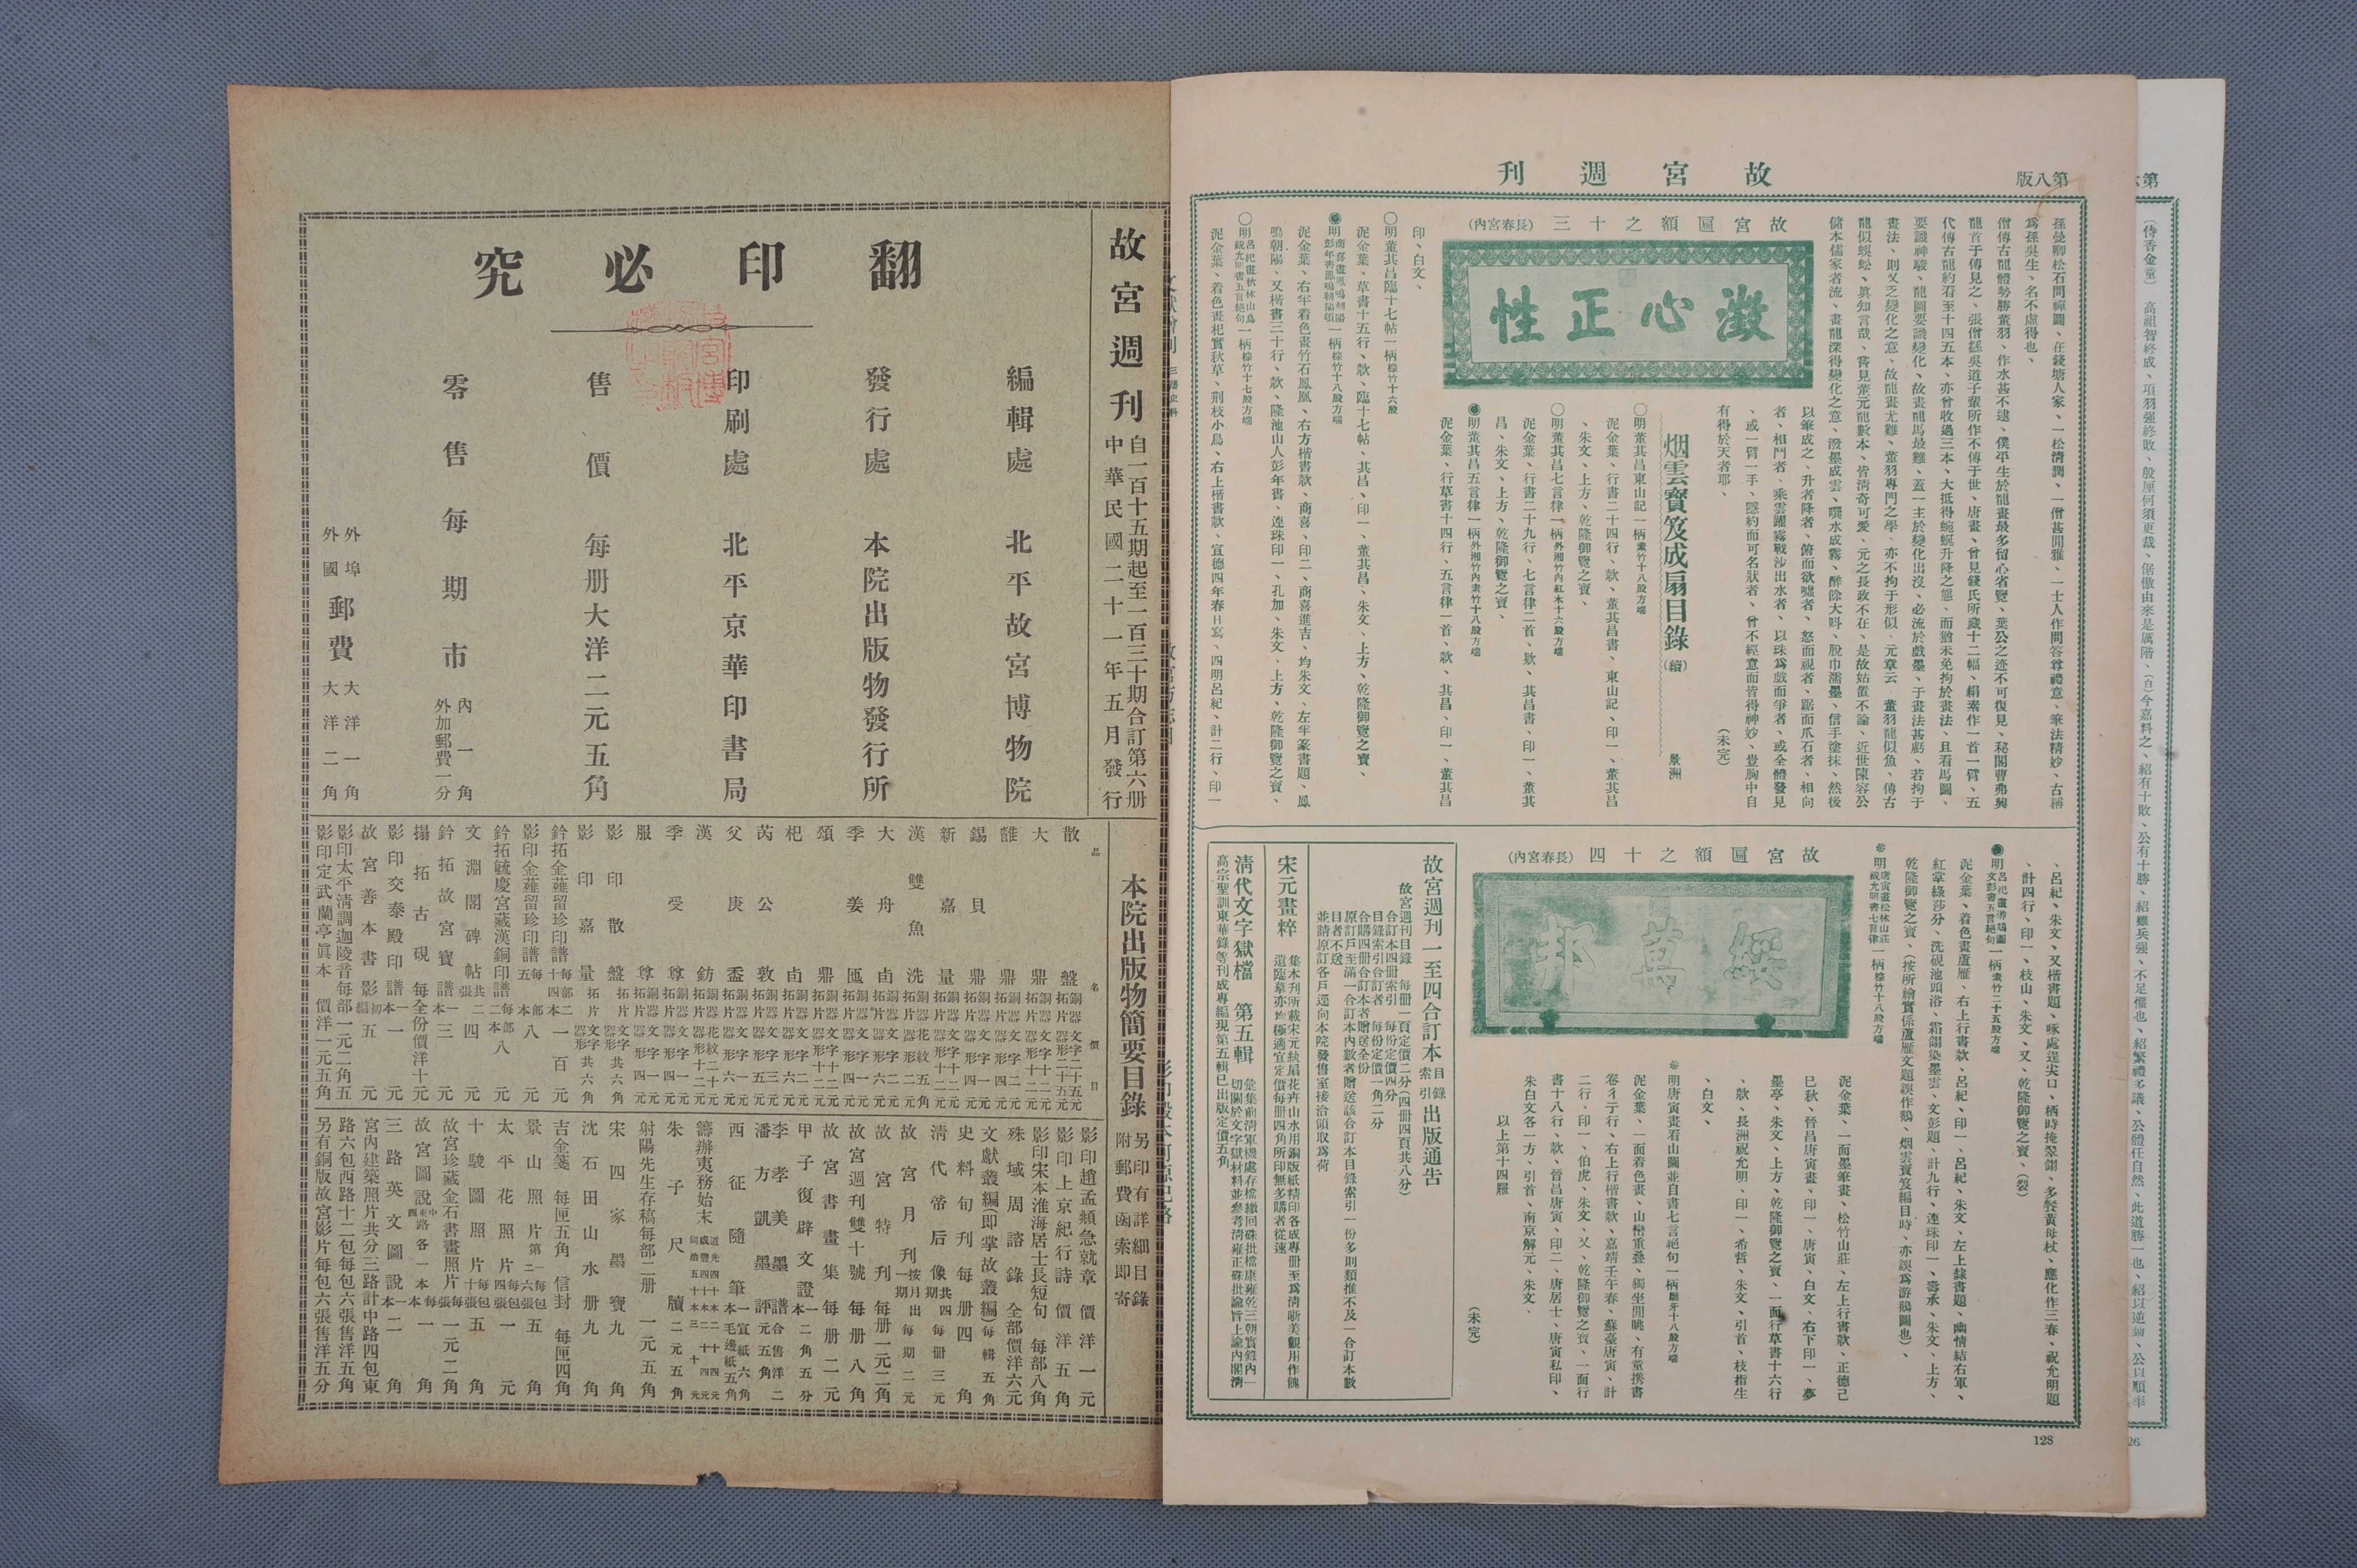 故宮週刊
第八版
孫曼卿松石問禪圖、在錢塘人家、一松清潤、一僧甚閒雅、一士人作問答尊禮意、筆法精妙、古稱
爲孫吳生、名不虛得也、
僧傳古龍體勢勝董羽、作水甚不逮、僕平生於龍畫最多留心省覽、葉公之迹不可復見、秘閣曹弗興
龍首于傳見之、張僧繇吳道子輩所作不傳于世、唐畫、曾見錢氏所藏十二幅、絹素作一首一臂、五
代傳古龍約看至十四五本、亦曾收過三本、大抵得蜿蜒升降之態、而猶未免拘於畫法、且看馬圖、
要識神駿、龍圖要識變化、故畫龍馬最難、蓋一主於變化出沒、必流於戲墨、于畫法甚虧、若拘于
畫法、則又乏變化之意、故龍畫尤難、董羽專門之學、亦不拘于形似、元章云 董羽龍似魚、傳古
龍似蜈蚣、眞知言哉、嘗見董元龍數本、皆清奇可愛、元之長政不在、是故姑置不論、近世陳容公
儲本儒家者流、畫龍深得變化之意、潑墨成雲、噀水成霧、醉餘大呌、脫巾濡墨、信手塗抹、然後
以筆成之、升者降者、俯而欲噓者、怒而視者、踞而爪石者、相向
者、相鬥者、乘雲躍霧戰沙出水者、以珠爲戲而爭者、或全體發見
、或一臂一手、隱約而可名狀者、曾不經意而皆得神妙、豈胸中自
有得於天者耶、
(未完)
故宮匾額之十三(長春宮內)
澂心正性
烟雲寶笈成扇目錄(續)
景洲
〇明董其昌東山記一柄素竹十八股方端
泥金葉、行書二十四行、款、董其昌書、東山記、印一、董其昌
、朱文、上方、乾隆御覽之寶、
〇明董其昌七言律一柄外湘竹內紅木十六股方端
泥金葉、行書二十九行、七言律二首、欵、其昌書、印一、董其
昌、朱文、上方、乾隆御覽之寶、
明董其昌五言律一柄外湘竹內素竹十八股方端
泥金葉、行草書十四行、五言律一首、欵、其昌、印一、董其昌
印、白文、
〇明董其昌臨十七帖一柄棕竹十六股
泥金葉、草書十五行、欵、臨十七帖、其昌、印一、董其昌、朱文、上方、乾隆御覽之寶、
明商喜畫鳳鳴朝陽彭年書鳳鳴朝陽頌一柄棕竹十八股方端
泥金葉、右半着色畫竹石鳳凰、右方楷書款、商喜、印二、商喜進吉、均朱文、左半篆書題、鳳
鳴朝陽、又楷書三十行、欵、隆池山人彭年書、連珠印一、孔加、朱文、上方、乾隆御覽之寶、
〇明呂紀畫秋林山鳥祝允明書五言絕句一柄棕竹十七股方端
泥金葉、着色畫杞實秋草、荆枝小鳥、右上楷書款、宣德四年春日寫、四明呂紀、計二行、印一
、呂紀、朱文、又楷書題、啄處逞尖口、栖時掩翠翎、多餐黃母杖、應化作三春、祝允明題
、計四行、印一、枝山、朱文、又、乾隆御覽之寶、(裂)
明呂紀畫游鵝圖文彭書五言絕句一柄素竹二十五股方端
泥金葉、着色畫蘆雁、右上行書款、呂紀、印一、呂紀、朱文、左上隸書題、幽情結右軍、
紅掌綠莎分、洗硯池頭浴、霜翎染墨雲、文彭題、計九行、連珠印一、壽承、朱文、上方、
乾隆御覽之寶、(按所繪實係蘆雁文題誤作鵝、烟雲寶笈編目時、亦誤爲游鵝圖也)、
明唐寅畫松林山莊祝允明書七言律一柄棕竹十八股方端
故宮匾額之十四(長春宮內)
綏萬邦
泥金葉、一面墨筆畫、松竹山莊、左上行書款、正德己
巳秋、晉昌唐寅畫、印一、唐寅、白文、右下印一、夢
墨亭、朱文、上方、乾隆御覽之寶、一面行草書十六行
、欵、長洲祝允明、印一、希哲、朱文、引首、枝指生
、白文、
明唐寅畫看山圖並自書七言絕句一柄雕牙十八股方端
泥金葉、一面着色畫、山巒重叠、獨坐閒眺、有童携書
卷彳亍行、右上行楷書款、嘉靖壬午春、蘇臺唐寅、計
二行、印一、伯虎、朱文、又、乾隆御覽之寶、一面行
書十八行、欵、晉昌唐寅、印二、唐居士、唐寅私印、
朱白文各一方、引首、南京解元、朱文、
以上第十四匣
(未完)
故宮週刊一至四合訂本目錄索引出版通告
故宮週刊目錄 每冊一頁定價二分(四冊四頁共八分)
合訂本四冊索引 每份定價四分
目錄索引合訂者 每份定價一角二分
合購四冊合訂本者贈送全份
原訂戶至滿一合訂本內數者贈送該合訂本目錄索引一份多則類推不及一合訂本數
目者不送
並請原訂各戶逕向本院發售室接洽領取爲荷
宋元畫粹
集本刊所載宋元紈扇花卉山水用銅版紙精印各成專冊至爲清晰美觀用作餽
遺臨摹亦均極適宜定價每冊四角所印無多購者從速
清代文字獄檔 第五輯
彙集前清軍機處存檔繳回硃批檔康雍乾三朝實錄內一
切關於文字獄材料並參考清雍正硃批諭旨上諭內閣清
高宗聖訓東華錄等刊成專編現第五輯已出版定價五角
128
故宮週刊
自一百十五期起至一百三十期合訂第六册
中華民國二十一年五月發行
翻印必究
編輯處 北平故宮博物院
發行處 本院出版物發行所
印刷處 北平京華印書局
售價 每册大洋二元五角
零售每期 市內一角 外加郵費一分
外埠 郵費大洋一角
外國 郵費大洋二角
本院出版物簡要目錄
另印有詳細目錄
附郵費函索即寄
品名 價目
散盤 銅器文字二十五元 拓片器形二十五元
大鼎 銅器文字十二元 拓片器形十二元
誰鼎 銅器文字二元 拓片器形二元
錫貝鼎 銅器文字一元 拓片器形四元
新嘉量 銅器文字十二元 拓片器形十二元
漢雙魚洗 銅器花紋五角 拓片器形二元
大舟卣 銅器文字六元
季姜匜 銅器文字一元 拓片器形四元
頌鼎 銅器文字十二元 拓片器形十二元
杞卣 銅器文字六元 拓片器形二元
芮公敦 銅器文字五元 拓片器形三元
父庚盉 銅器文字一元 拓片器形六元
漢鈁 銅器花紋二十元 拓片器形十二元
季受尊 銅器文字一元 拓片器形四元
服尊 銅器文字一元 拓片器形四元
影印散盤 拓片文字器形共六角
影印嘉量 拓片文字器形共六角
鈐拓金薤留珍印譜 每部二十四本 一百元
影印金薤留珍印譜 每部五本 八元
鈐拓毓慶宮藏漢銅印譜 每部二本 八元
文淵閣碑帖 共二張 四元
鈐拓故宮寶譜 一本 三元
搨拓古硯 每全份價洋十元
影印交泰殿印譜 一本 一元
故宮善本書影初編 五元
影印太平清調迦陵音 每部一元二角五
影印定武蘭亭眞本 價洋一元五角
影印趙孟頫急就章 價洋一元
影印上京紀行詩 價洋五角
影印宋本淮海居士長短句 每部八角
殊域周諮錄 全部價洋六元
文獻叢編(即掌故叢編) 每輯五角
史料旬刊 每册四角
清代帝后像 共四期 每册三元
故宮月刊 按月出一期 每期二元
故宮特刊 每册一元二角
故宮週刊雙十號 每册八角
故宮書畫集 每册二元
甲子復辟文證 一本 二角五分
李孝美墨譜 潘方凱墨評 合售洋二元五角
西征隨筆 一本 宣紙六角 毛邊紙五角
籌辦夷務始末 道光四十本二十四元 咸豐四十本二十四元 同治五十本三十元
朱子尺牘 二元五角
射陽先生存稿 每部二册 一元五角
宋四家墨寶 九角
沈石田山水册 九角
吉金箋 每匣五角 信封 每匣四角
景山照片 第一二 每包六張 五角
太平花照片 每包四張 一元
十駿圖照片 每包十張 五角
故宮珍藏金石書畫照片 每張一元二角
故宮圖說 中東西路各一本 每本一角
三路英文圖說 一本 二角
宮內建築照片共分三路計中路四包東
路六包西路十二包每包六張售洋五角
另有銅版故宮影片每包六張售洋五分